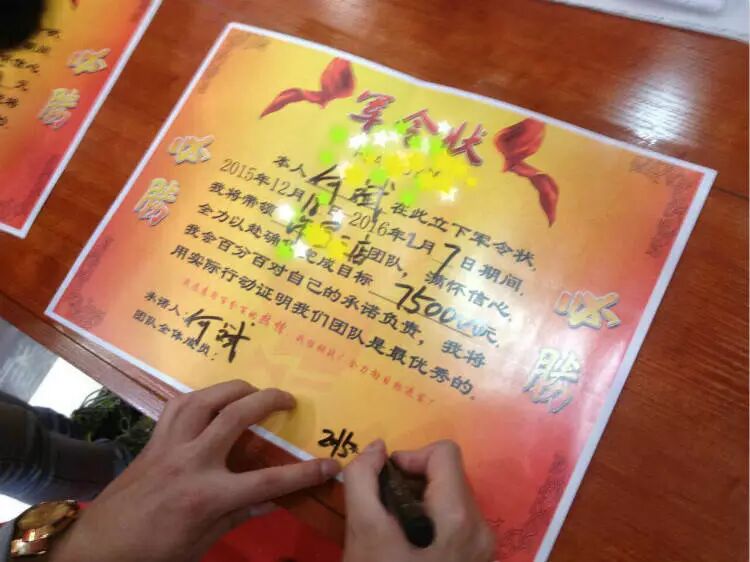 军令状
本人何斌在此立下军令状,
2015年12月 日-2016年1月7日期间,
我将带领 店团队,满怀信心,
全力以赴确 完成目标750000元,
我会百分百对自己的承诺负责,我将
用实际行动证明我们团队是最优秀的。
承诺人:何斌
团队全体成员:
2015
必胜
必胜
必胜